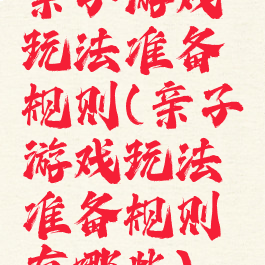 亲子游戏
玩法准备
规则(亲子
游戏玩法
准备规则
有哪些)